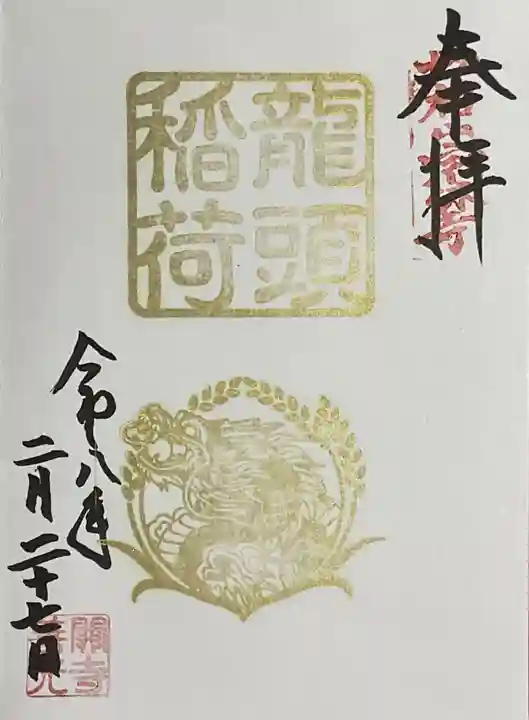 奉拝
龍頭
稲荷
令和八年
二月二十七日